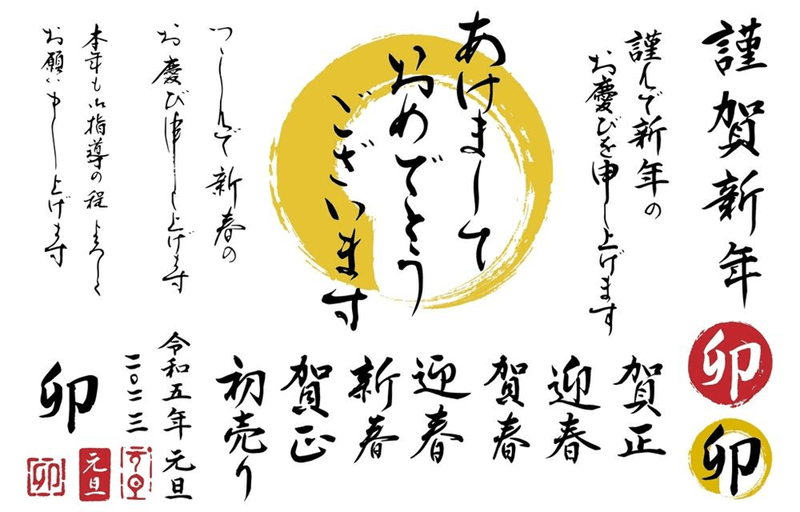 謹賀新年
卯
卯
謹んで新年の
お慶びを申し上げます
あけまして
おめでとう
ございます
つつしんで新春の
お慶び申し上げます
本年も御指導の程よろしく
お願い申し上げます
賀正
迎春
賀春
迎春
新春
賀正
初売り
令和五年元旦
二〇二三
元旦
元旦
卯
卯